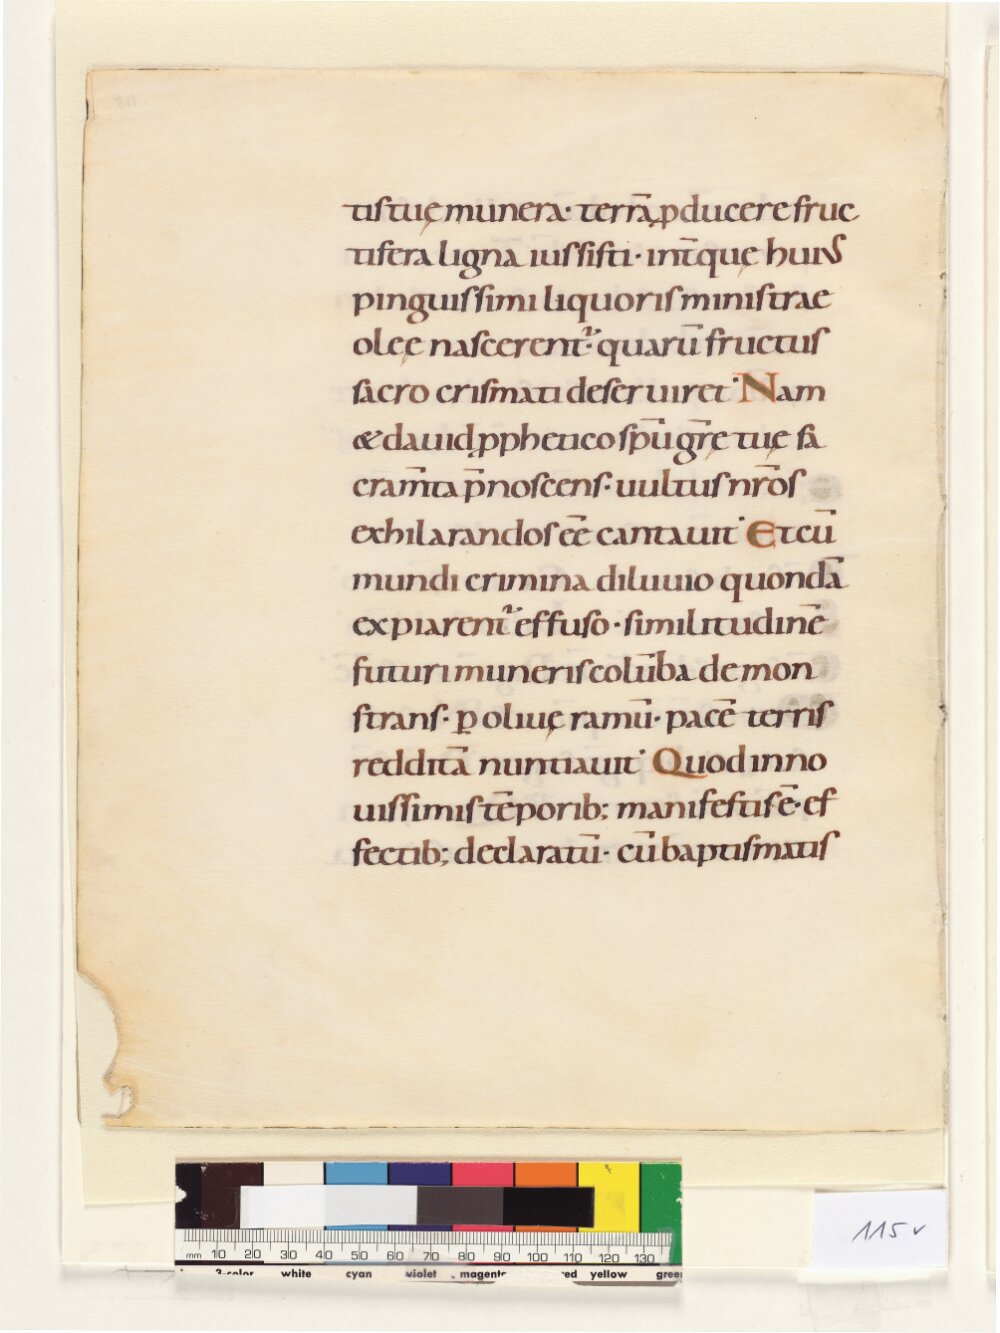 tistuę munera· terrā ꝓducere fruc
tifera ligna iussisti· int̄ quę huiꝰ
pinguissimi liquoris ministrae
oleę nascerent᷑· quarū fructus
sacro crismati deseruiret· Nam
& dauid ꝓphetico sp̄u gr̄ę tuę sa
cram̄ta p̄noscens· uultus nr̄os
exhilarandos ēē cantauit· Et cū
mundi crimina diluuio quondā
expiarent᷑ effuso· similitudinē
futuri muneris colūba demon
strans· ꝑ oliuę ramū· pacē terris
redditā nuntiauit· Quod in no
uissimis tēporib; manifestis ē· ef
fectib; declaratū· cū baptismatis
115v
mm 10 20 30 40 50 60 70 80 90 100 110 120 130
3-color white cyan violet magenta red yellow green